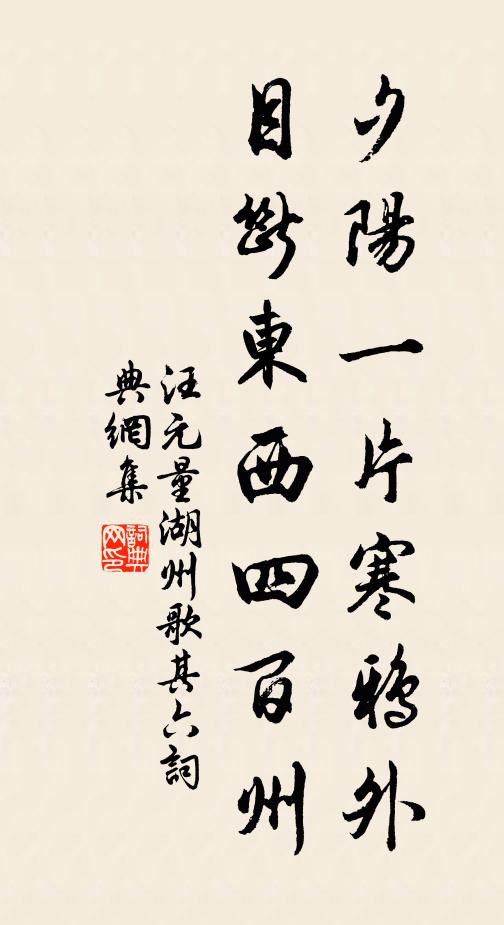 夕陽一片寒鴉外
目斷東西四百州
汪元量湖州歌其六詞
典網集
詞典
网印